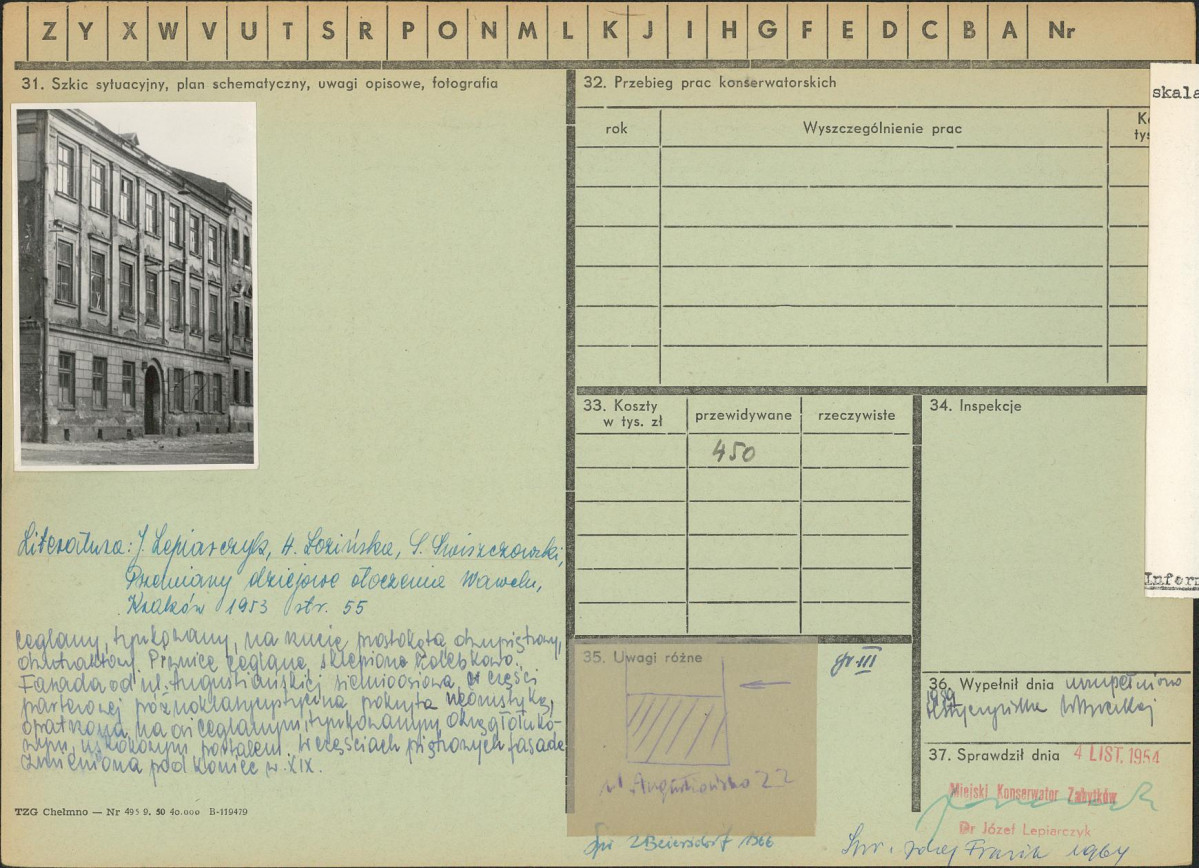 Z Y X W V U T S R P O N M L K J I H G F E D C B A Nr
31. Szkic sytuacyjny, plan schematyczny, uwagi opisowe, fotografia
Literatura: J. Lepiarczyk, H. Łozińska, S. Świszczowski,
Przemiany dziejowe otoczenia Wawelu,
Kraków 1953 str. 55
Ceglany, tynkowany, na rzucie prostokąta dwupiętrowy,
dwutraktowy. Piwnice ceglane, sklepione kolebkowo.
Fasada od ul. Augustiańskiej siedmioosiowa, w części
parterowej późnoklasycystyczna pokryta
opatrzona na osi ceglanym, tynkowanym, okrągłołuko-
wym, uskokowym portalem. W częściach piętrowych fasada
zmieniona pod koniec w. XIX.
TZG Chełmno — Nr 495 9. 50 40.000 B-119479
32. Przebieg prac konserwatorskich
rok
Wyszczególnienie prac
skala
33. Koszty
w tys. zł
przewidywane
rzeczywiste
450
34. Inspekcje
Inform
35. Uwagi różne
gr III
ul Augustiańska 22
Spr Z Beiersdorf 1966
36. Wypełnił dnia uzupełniono
1959
37. Sprawdził dnia 4 LIST. 1954
Miejski Konserwator Zabytków
Dr Józef Lepiarczyk
1964